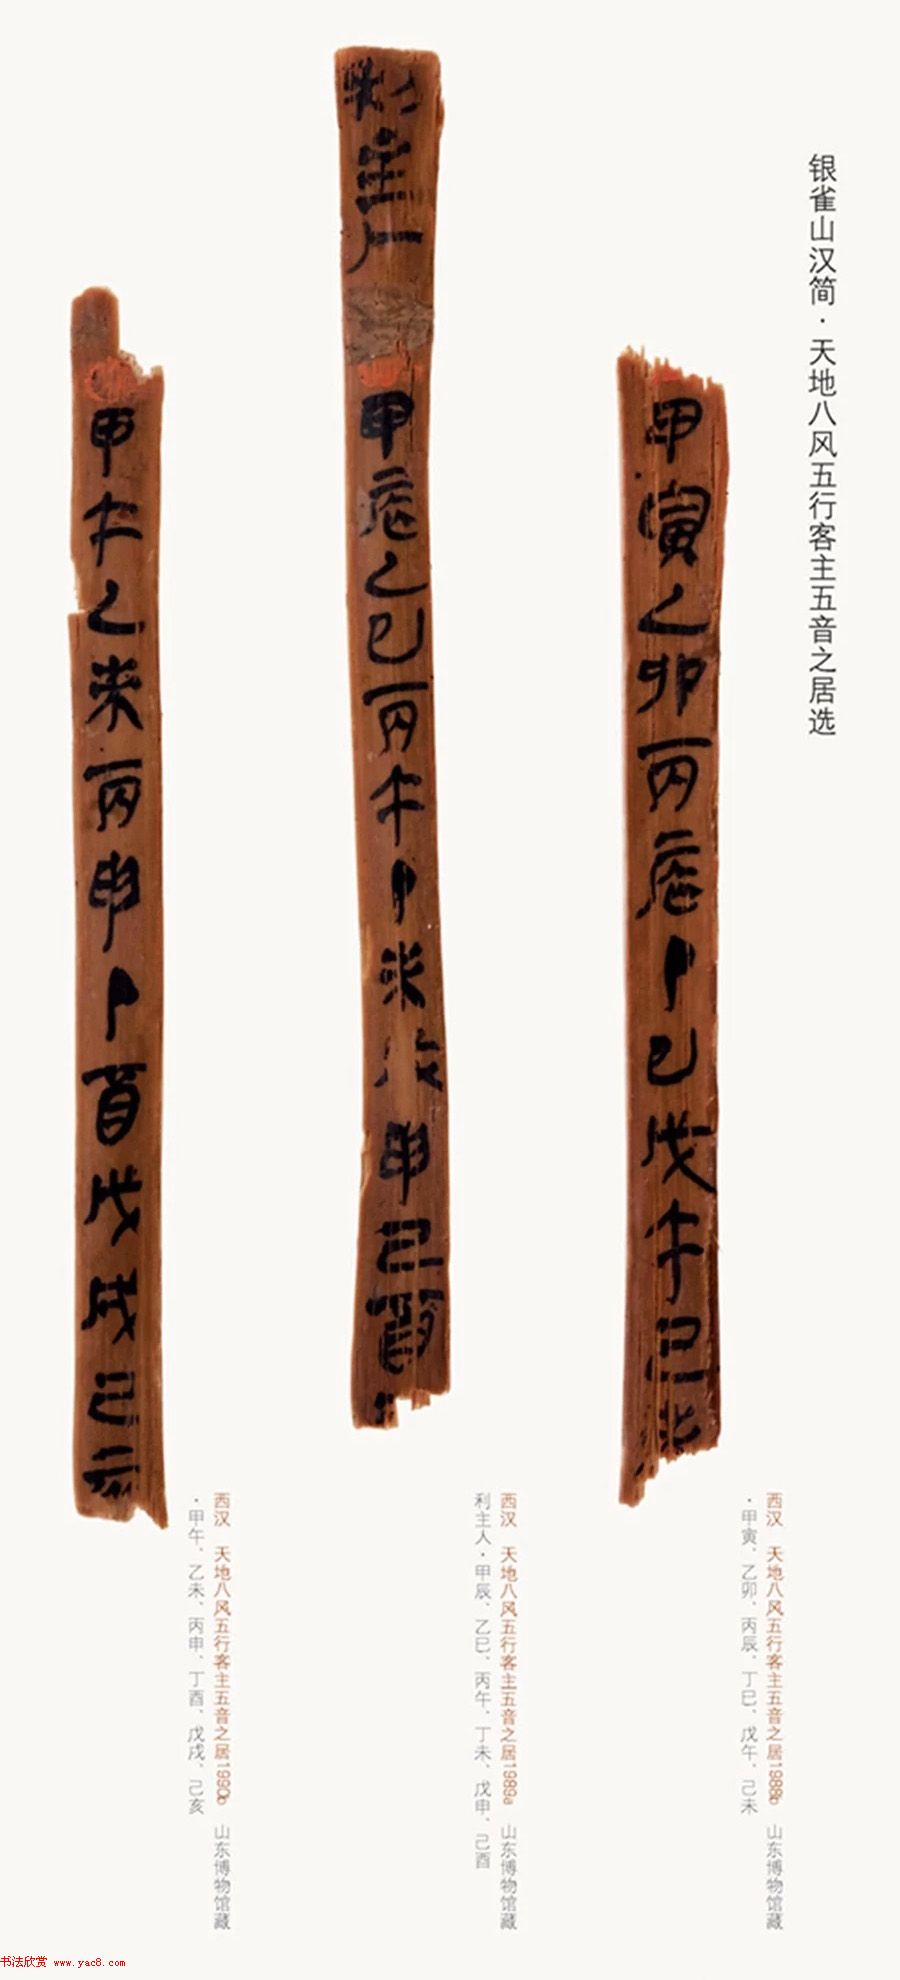 银雀山汉简·天地八风五行客主五音之居选
甲寅乙卯丙辰丁巳戊午己未
西汉 天地八风五行客主五音之居1988b 山东博物馆藏
·甲寅、乙卯、丙辰、丁巳、戊午、己未
利主人
甲辰乙巳丙午丁未戊申己酉
西汉 天地八风五行客主五音之居1989a 山东博物馆藏
利主人·甲辰、乙巳、丙午、丁未、戊申、己酉
甲午乙未丙申丁酉戊戌己亥
西汉 天地八风五行客主五音之居1990b 山东博物馆藏
·甲午、乙未、丙申、丁酉、戊戌、己亥
书法欣赏 www.yac8.com